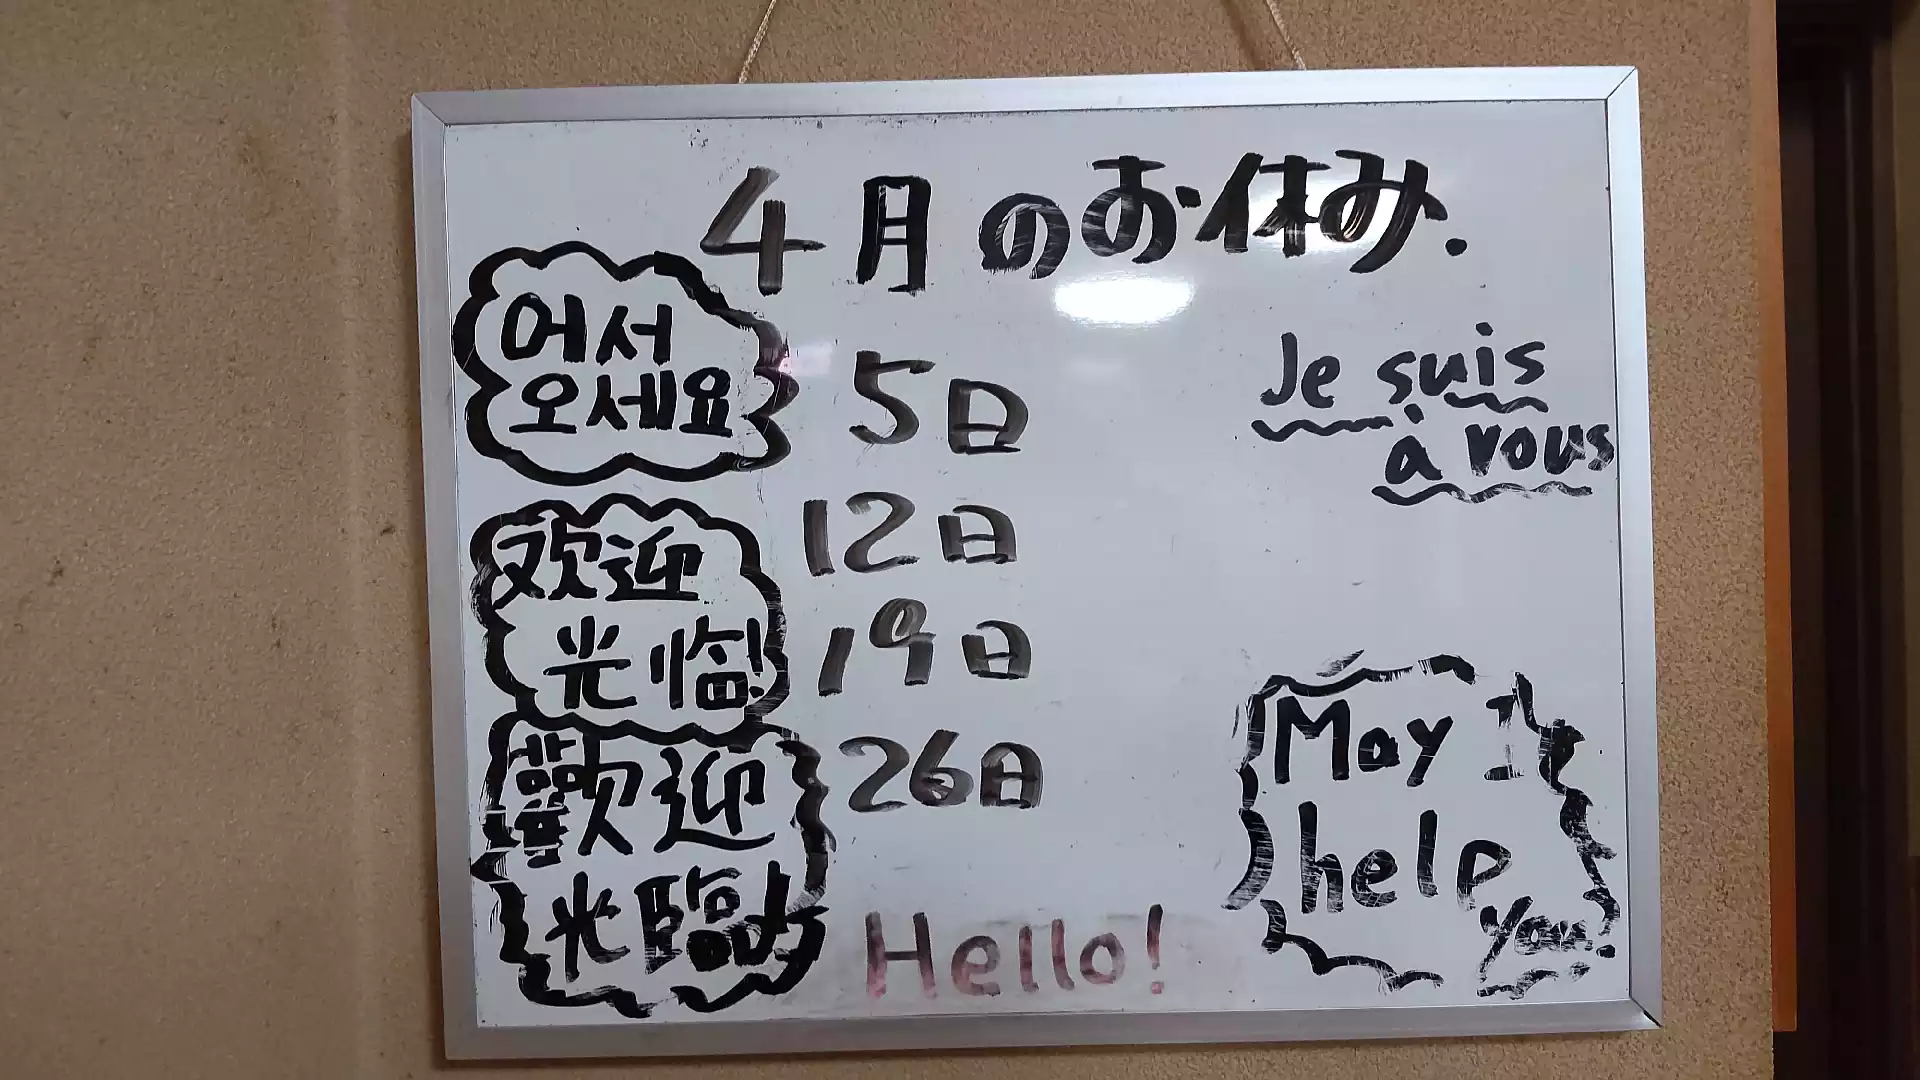 4月のお休み.
어서
오세요
欢迎
光临!
歡迎
光臨!
5日
12日
19日
26日
Hello!
Je suis
à vous
May I
help
you!